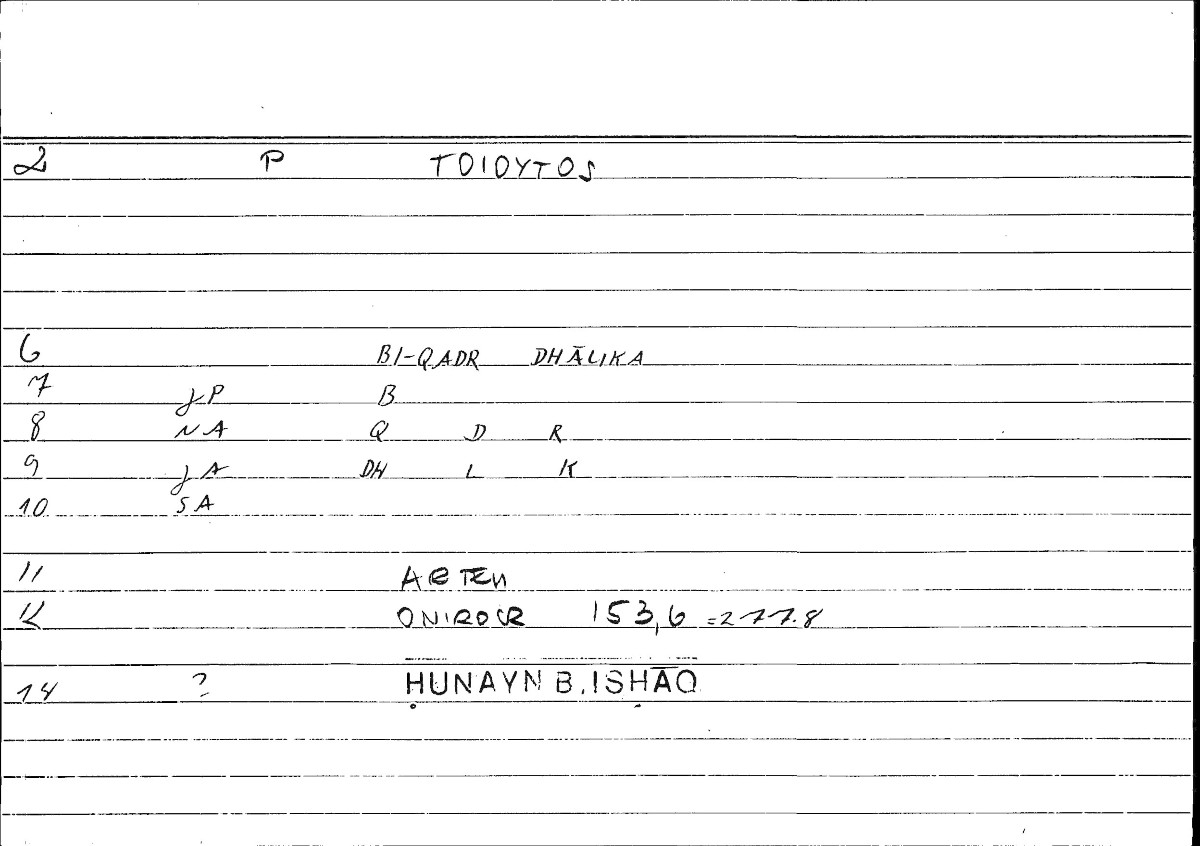 2 P TOIOYTOS
6 BI-QADR DHĀLIKA
7 JP B
8 NA Q D R
9 JA DH L K
10 SA
11 ARTEM
12 ONIROCR 153,6 =277.8
14 ? ḤUNAYN B. ISḤĀQ